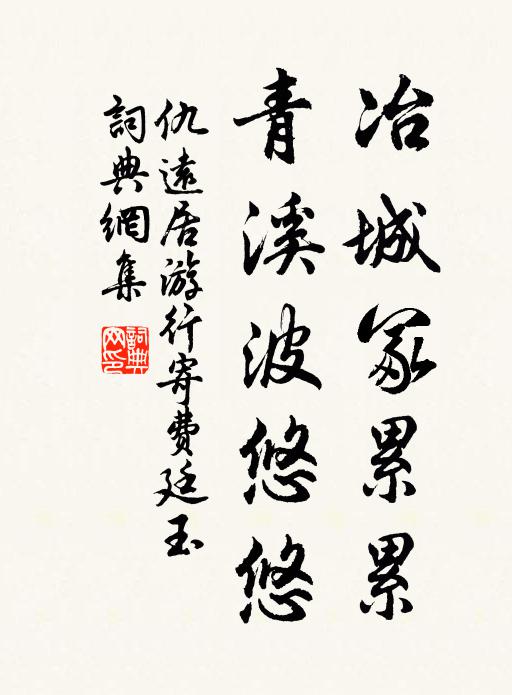 冶城冢累累
青溪波悠悠
仇遠居游行寄費廷玉
詞典網集
詞典網印